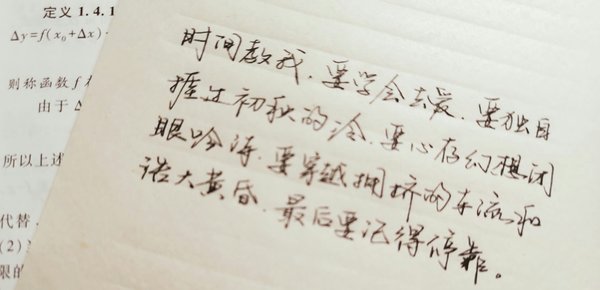 定义 1.4.1
Δy=f(x₀+Δx)
则称函数 f
由于 Δ
所以上述
代替，
(2)
限的
时间教我，要学会去爱，要独自
捱过初秋的冷，要心存幻想闭
眼吟诗，要穿越拥挤的车流和
诺大黄昏，最后要记得停靠。